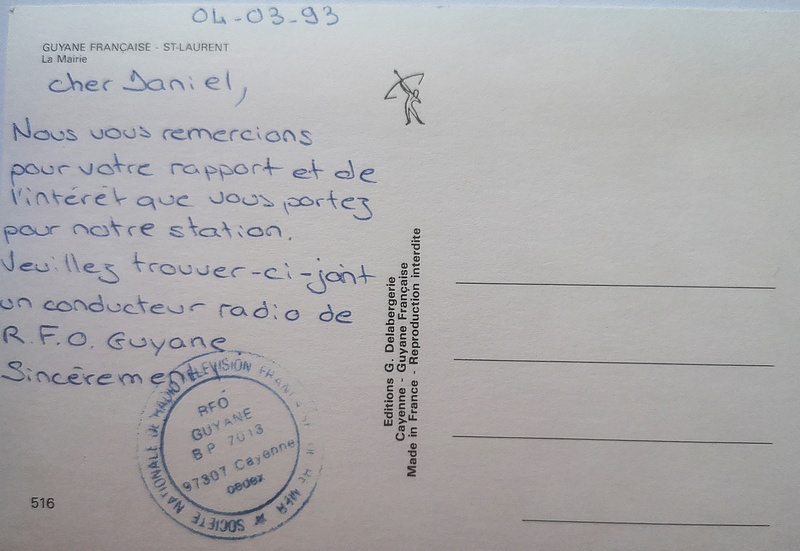 04-03-93
GUYANE FRANÇAISE - ST-LAURENT
La Mairie
cher Daniel,
Nous vous remercions
pour votre rapport et de
l'intérêt que vous portez
pour notre station.
Veuillez trouver-ci-joint
un conducteur radio de
R.F.O. Guyane
Sincèrement
SOCIETE NATIONALE DE RADIO TELEVISION FRANÇAISE D'OUTRE MER
RFO
GUYANE
BP 7013
97307 Cayenne
cedex
516
Editions G. Delabergerie
Cayenne - Guyane Française
Made in France - Reproduction interdite